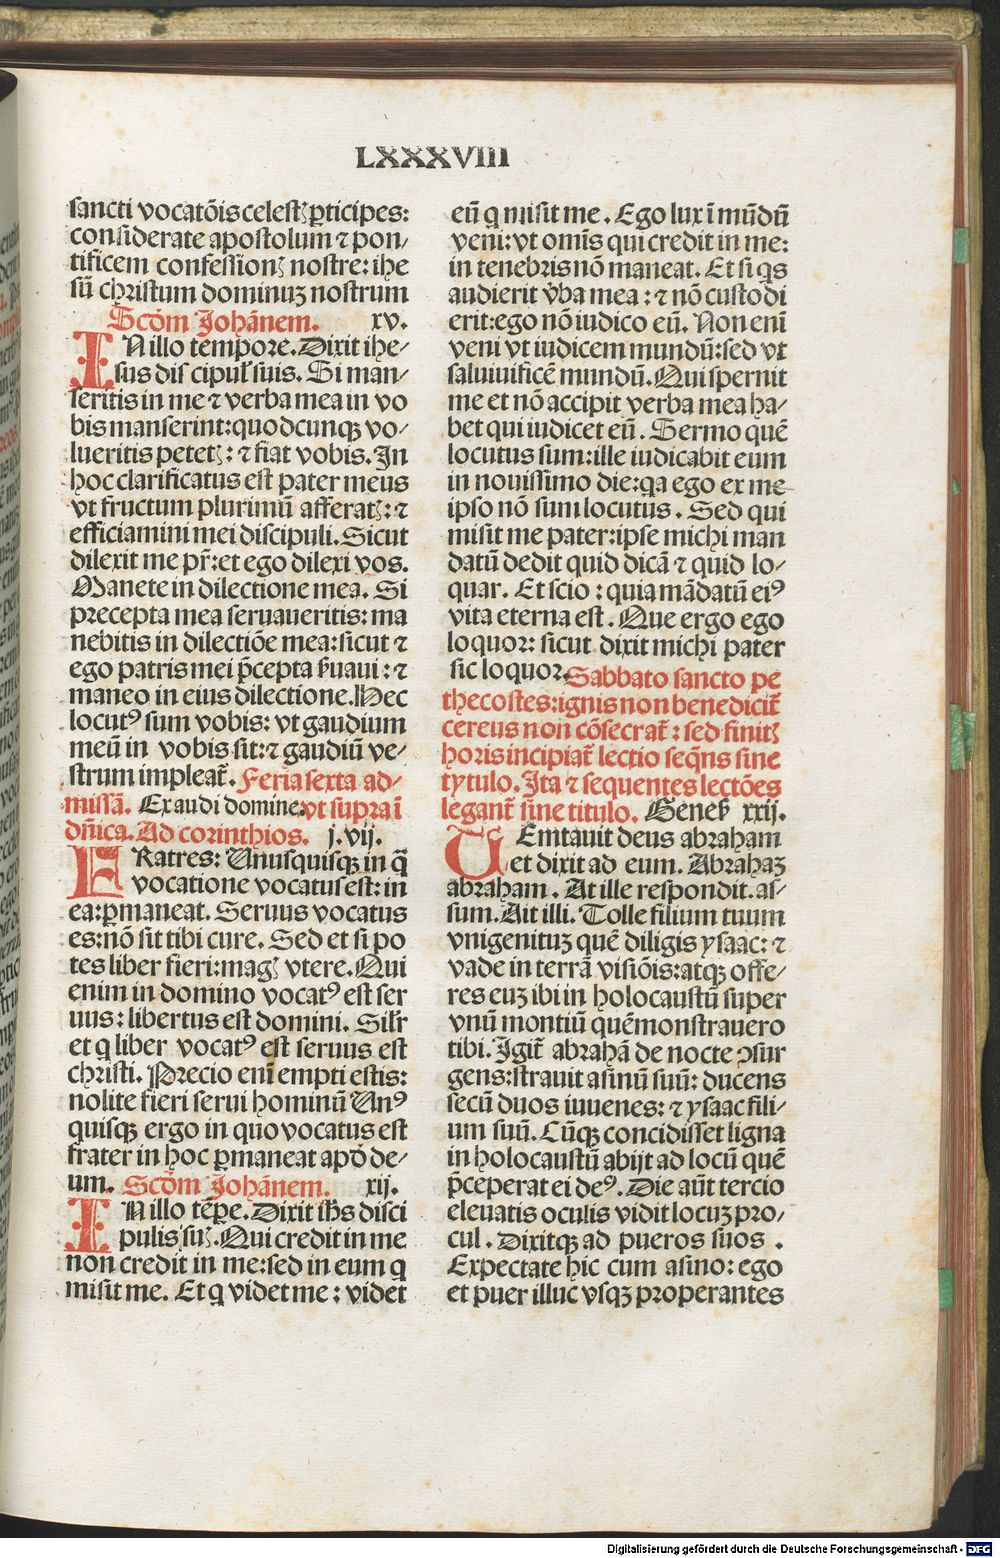 LXXXVIII
sancti vocatōis celestꝫ ꝑticipes:
considerate apostolum ⁊ pon/
tificem confessionꝫ nostre: ihe
sū christum dominuꝫ nostrum
Scḋm Johānem. xv.
IN illo tempore. Dixit ihe/
sus discipul' suis. Si man/
seritis in me ⁊ verba mea in vo
bis manserint: quodcunqꝫ vo/
lueritis petetꝫ: ⁊ fiat vobis. In
hoc clarificatus est pater meus
vt fructum plurimū afferatꝫ: ⁊
efficiamini mei discipuli. Sicut
dilexit me pr̄: et ego dilexi vos.
Manete in dilectione mea. Si
precepta mea seruaueritis: ma
nebitis in dilectiōe mea: sicut ⁊
ego patris mei p̄cepta ẜuaui: ⁊
maneo in eius dilectione. Hec
locutꝰ sum vobis: vt gaudium
meū in vobis sit: ⁊ gaudiū ve/
strum impleat̄. Feria sexta ad/
missā. Exaudi domine. vt supra ī
dn̄ica. Ad corinthios. j. vij.
FRatres: Vnusquisqꝫ in q̄
vocatione vocatus est: in
ea: ꝑmaneat. Seruus vocatus
es: nō sit tibi cure. Sed et si po
tes liber fieri: magꝫ vtere. Qui
enim in domino vocatꝰ est ser
uus: libertus est domini. Silr̄
et q liber vocatꝰ est seruus est
christi. Precio enī empti estis:
nolite fieri serui hominū Vnꝰ
quisqꝫ ergo in quo vocatus est
frater in hoc ꝑmaneat apḋ de/
um. Scḋm Johānem. xij.
IN illo tēꝑe. Dixit ihs̄ disci
pulis suꝫ. Qui credit in me
non credit in me: sed in eum q
misit me. Et q videt me: videt
eū q misit me. Ego lux ī mūdū
veni: vt omīs qui credit in me:
in tenebris nō maneat. Et si qs
audierit v̄ba mea: ⁊ nō custodi
erit: ego nō iudico eū. Non enī
veni vt iudicem mundū: sed vt
saluiuificē mundū. Qui spernit
me et nō accipit verba mea ha/
bet qui iudicet eū. Sermo quē
locutus sum: ille iudicabit eum
in nouissimo die: qa ego ex me
ipso nō sum locutus. Sed qui
misit me pater: ipse michi man
datū dedit quid dicā ⁊ quid lo/
quar. Et scio: quia mādatū eiꝰ
vita eterna est. Que ergo ego
loquor: sicut dixit michi pater
sic loquor. Sabbato sancto pe
thecostes: ignis non benedicit̄
cereus non cōsecrat̄: sed finitꝫ
horis incipiat̄ lectio seqn̄s sine
tytulo. Ita ⁊ sequentes lectōes
legant̄ sine titulo. Geneẜ xxij.
TEmtauit deus abraham
et dixit ad eum. Abrahaꝫ
abraham. At ille respondit. as/
sum. Ait illi. Tolle filium tuum
vnigenituꝫ quē diligis ysaac: ⁊
vade in terrā visiōis: atqꝫ offe/
res euꝫ ibi in holocaustū super
vnū montiū quē monstrauero
tibi. Igit̄ abrahā de nocte ꝯsur
gens: strauit asinū suū: ducens
secū duos iuuenes: ⁊ ysaac fili/
um suū. Cūqꝫ concidisset ligna
in holocaustū abijt ad locū quē
p̄ceperat ei deꝰ. Die aūt tercio
eleuatis oculis vidit locuꝫ pro/
cul. Dixitqꝫ ad pueros suos.
Expectate hic cum asino: ego
et puer illuc vsqꝫ properantes
Digitalisierung gefördert durch die Deutsche Forschungsgemeinschaft - DFG